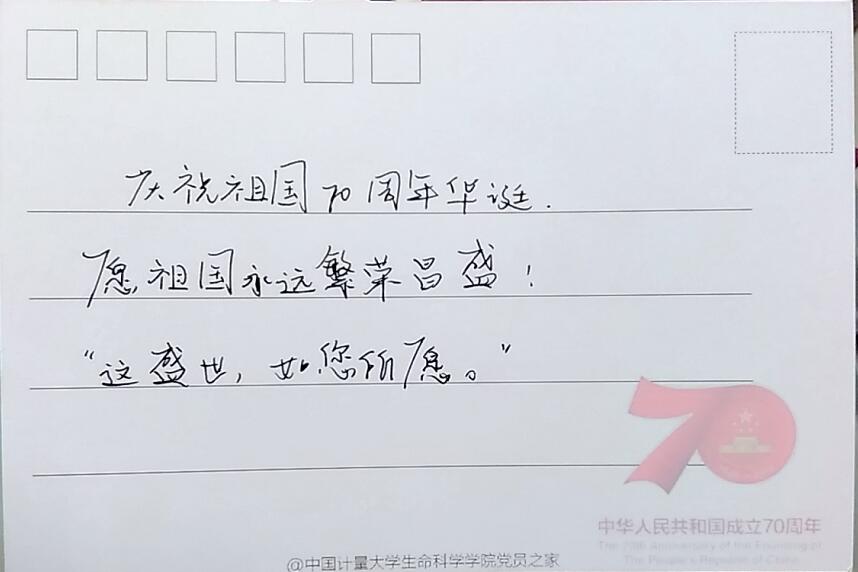 庆祝祖国70周年华诞.
愿祖国永远繁荣昌盛!
“这盛世,如您所愿。”
70
中华人民共和国成立70周年
The 70th Anniversary of the Founding of
The People's Republic of China
@中国计量大学生命科学学院党员之家